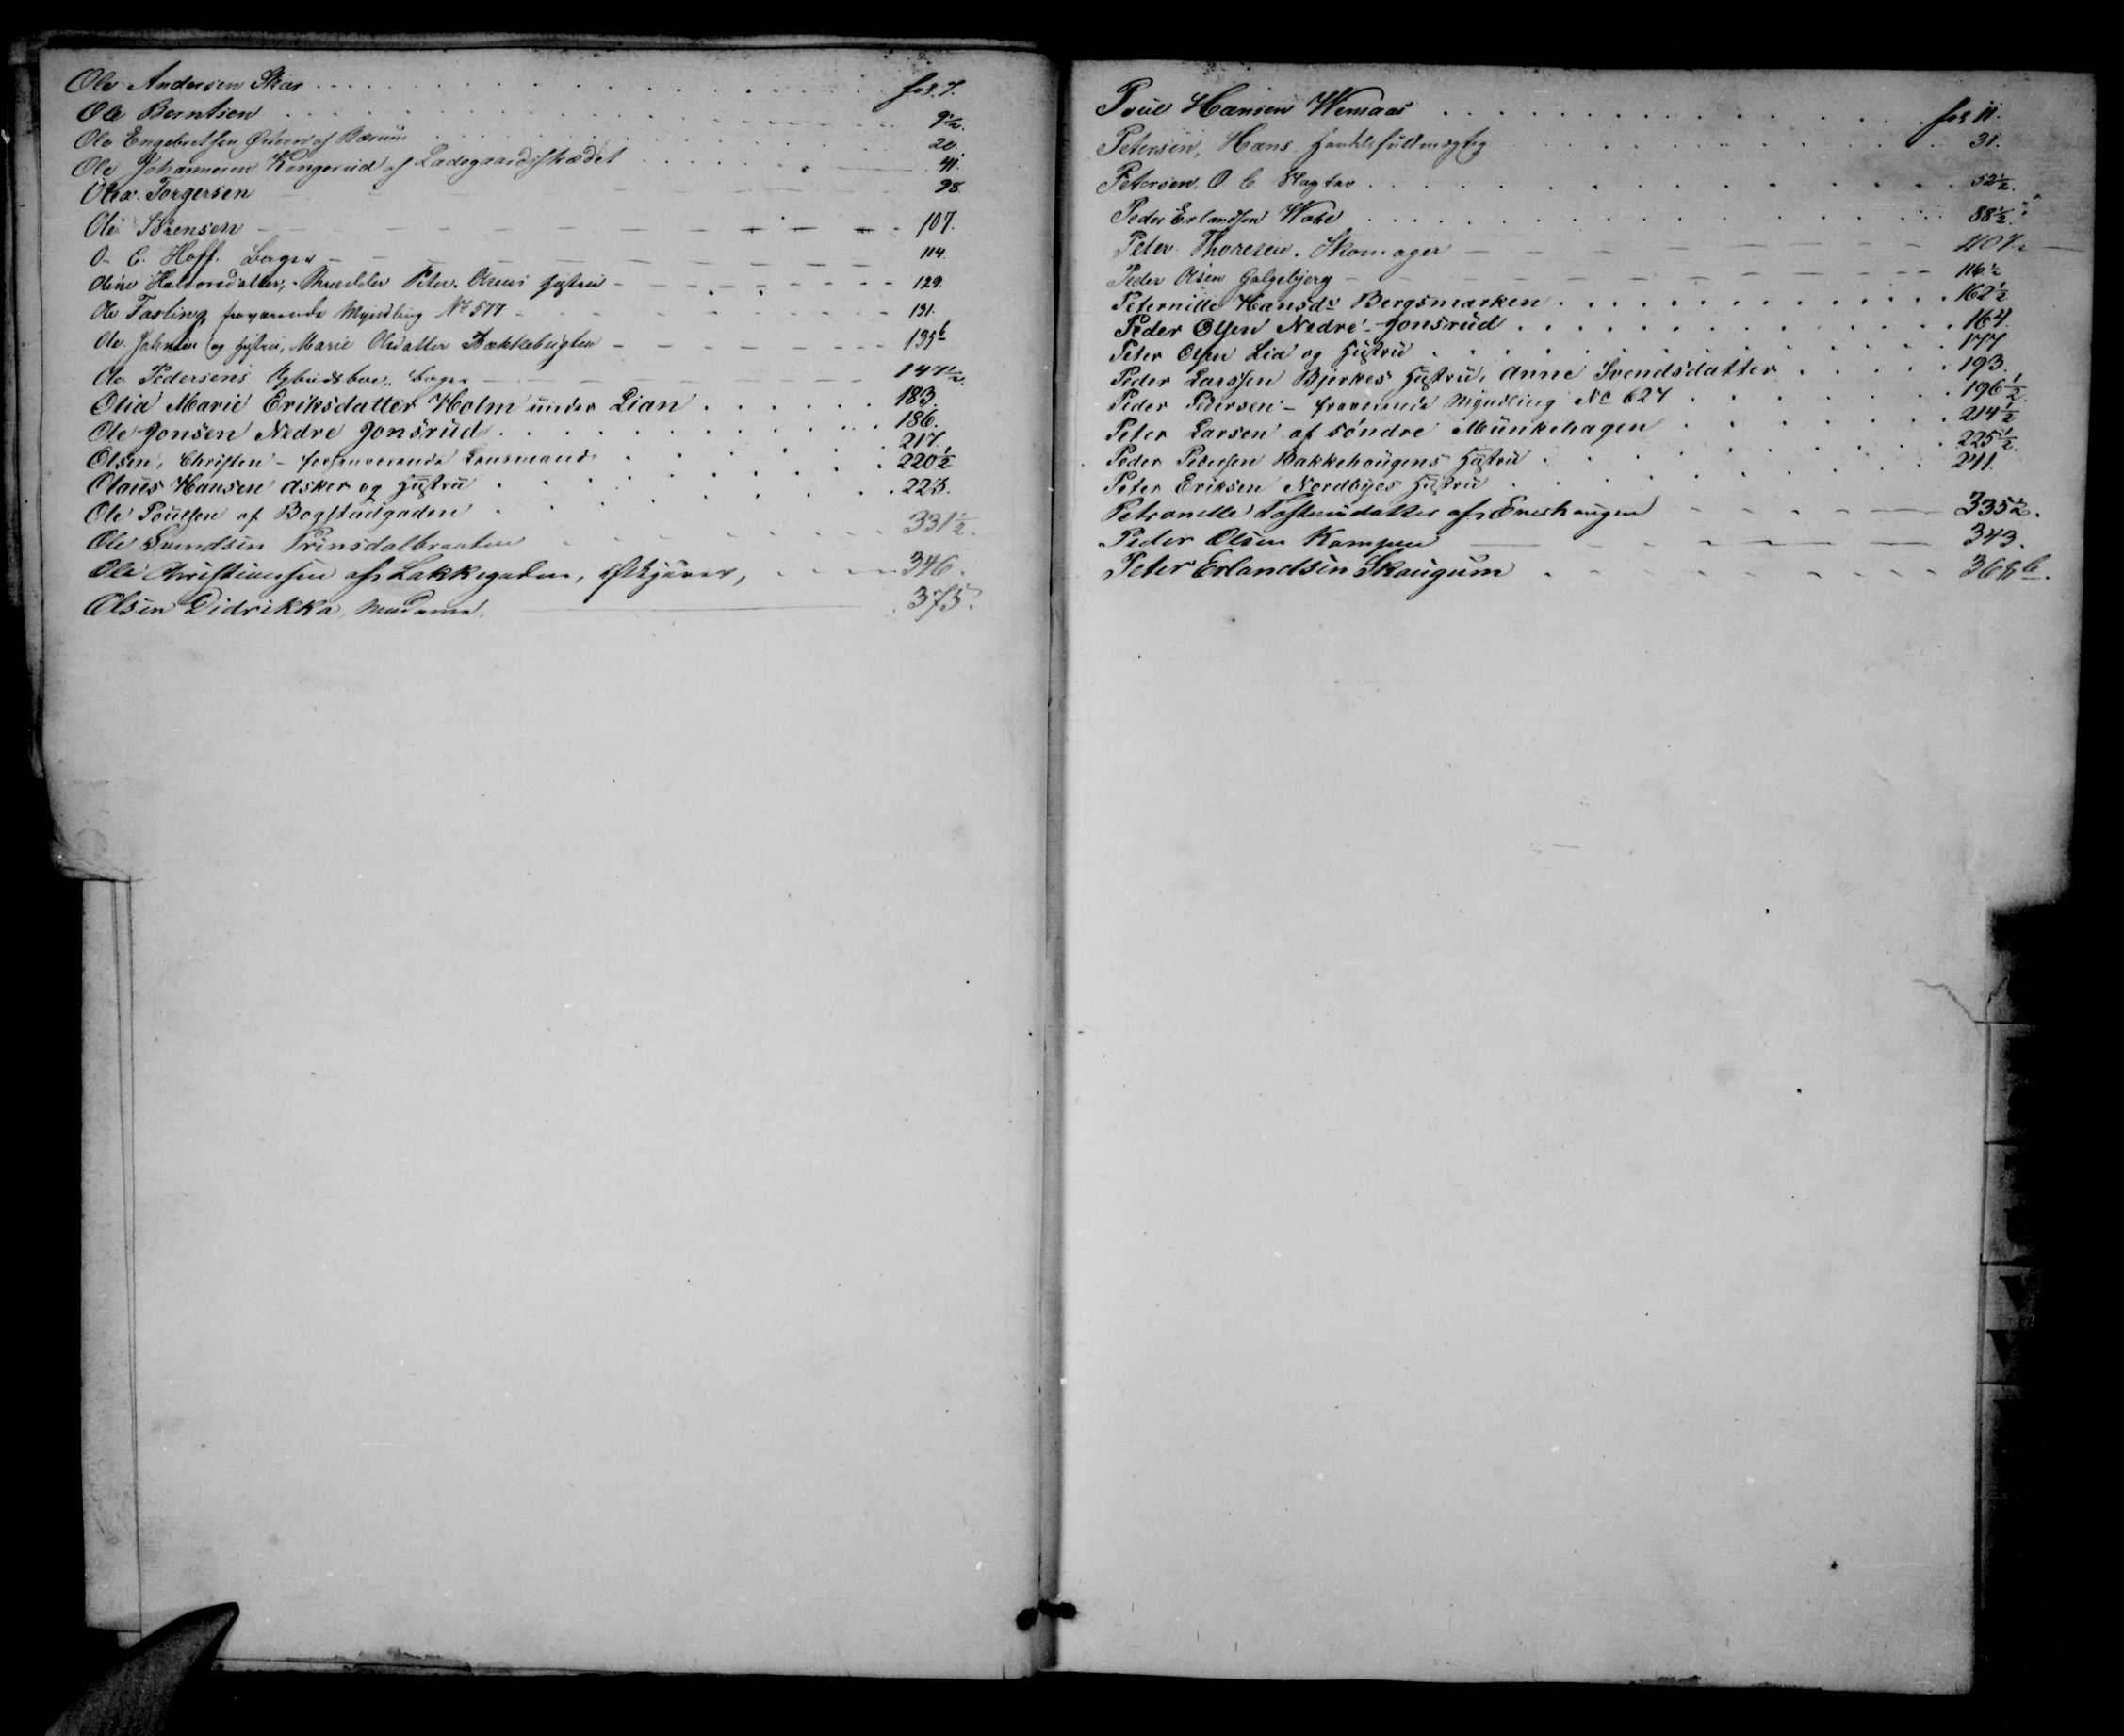 Ole Andersen Skar fol. 7.
Ole Berntsen 9 1/2.
Ole Engebretsen Østern af Bærum 20.
Ole Johannesen Kongerud af Ladegaardsstrædet 41.
Olea Torgersen 98.
Ole Sørensen 107.
O. C. Hoff. Borger 114.
Oline Halvorsdatter, Peter Olsens Hustru 129.
Ole Fasting fraværende Myndling No 577 131.
Ole Johnsen og Hustru, Marie Olsdatter Bækkebugten 135 b
Ole Pedersens Opbudsboe, Borger 147 1/2.
Olia Marie Eriksdatter Holm under Lian 183.
Ole Jonsen Nedre Jonsrud 186.
Olsen, Christen - forhenværende Lensmand 217.
Olaus Hansen Asker og Hustru 220 1/2
Ole Poulsen af Bogstadgaden 223.
Ole Svendsen Prinsdalbraaten 331 1/2.
Ole Christiansen af Lakkegaden, 346.
Olsen Didrikka, Madame. 375.
Poul Hansen Wensaas fol 11.
Petersen, Hans, Handelsfuldmægtig 31.
Petersen, O. C. Slagter 52 1/2.
Peder Erlandsen Wake 88 1/2.
Peter Thoresen. Skomager 107 1/2
Peder Olsen Galgebjerg 116 1/2
Peternille Hansdr Bergsmarken 162 1/2
Peder Olsen Nedre Jonsrud 164.
Peter Olsen Lia og Hustru 177
Peder Larssen Bjerkes Hustru, Anne Svendsdatter 193.
Peder Pedersen - fraværende Myndling No 627 196 1/2.
Peter Larsen af søndre Munkehagen 214 1/2
Peder Pedersen Bakkehougens Hustru 225 1/2.
Peter Eriksen Nordbyes Hustru 241.
Petronelle Tostensdatter af Enerhaugen 335 1/2.
Peder Olsen Kampen 343.
Peter Erlandsen Skaugum 368 b.